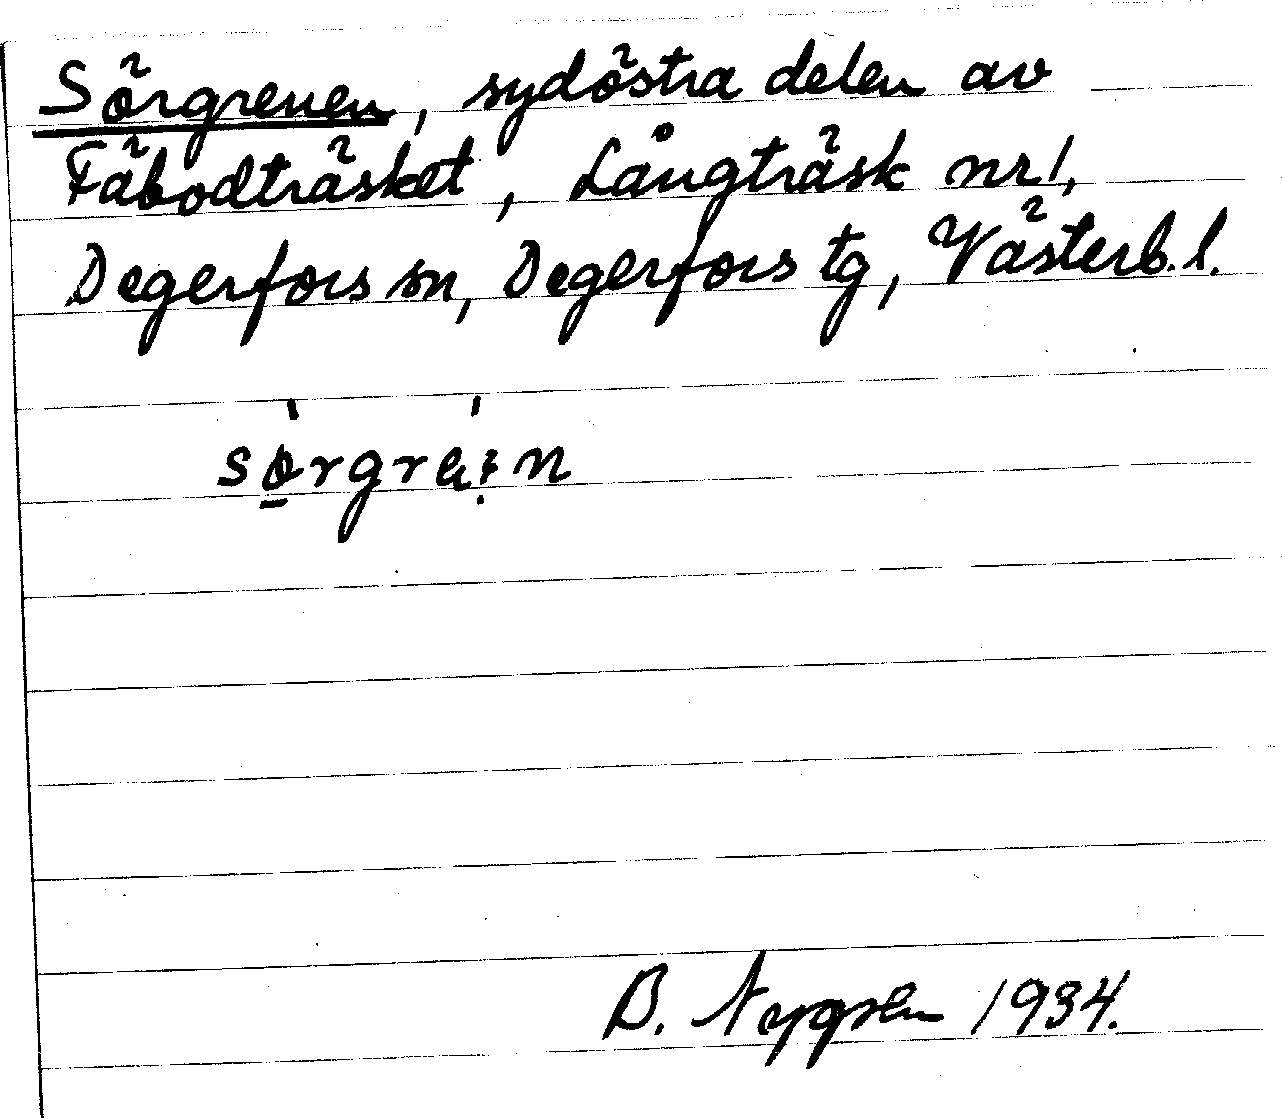 Sörgrenen, sydöstra delen av
Fäbodträsket, Långträsk nr 1,
Degerfors sn, Degerfors tg, Västerb. l.
B. Nygren 1934.